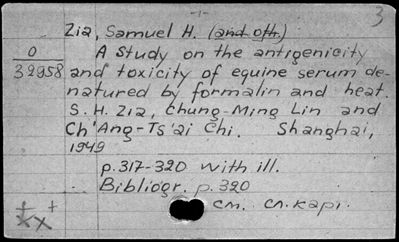 -1-
3
Zia, Samuel H. (and oth.)
0
39958
A study on the antigenicity
and toxicity of equine serum de-
natured by formalin and heat.
S. H. Zia, Chung-Ming Lin and
Ch'Ang-Ts'ai Chi. Shanghai,
1949
p. 317-320 with ill.
Bibliogr. p. 320
См. сл. карт.